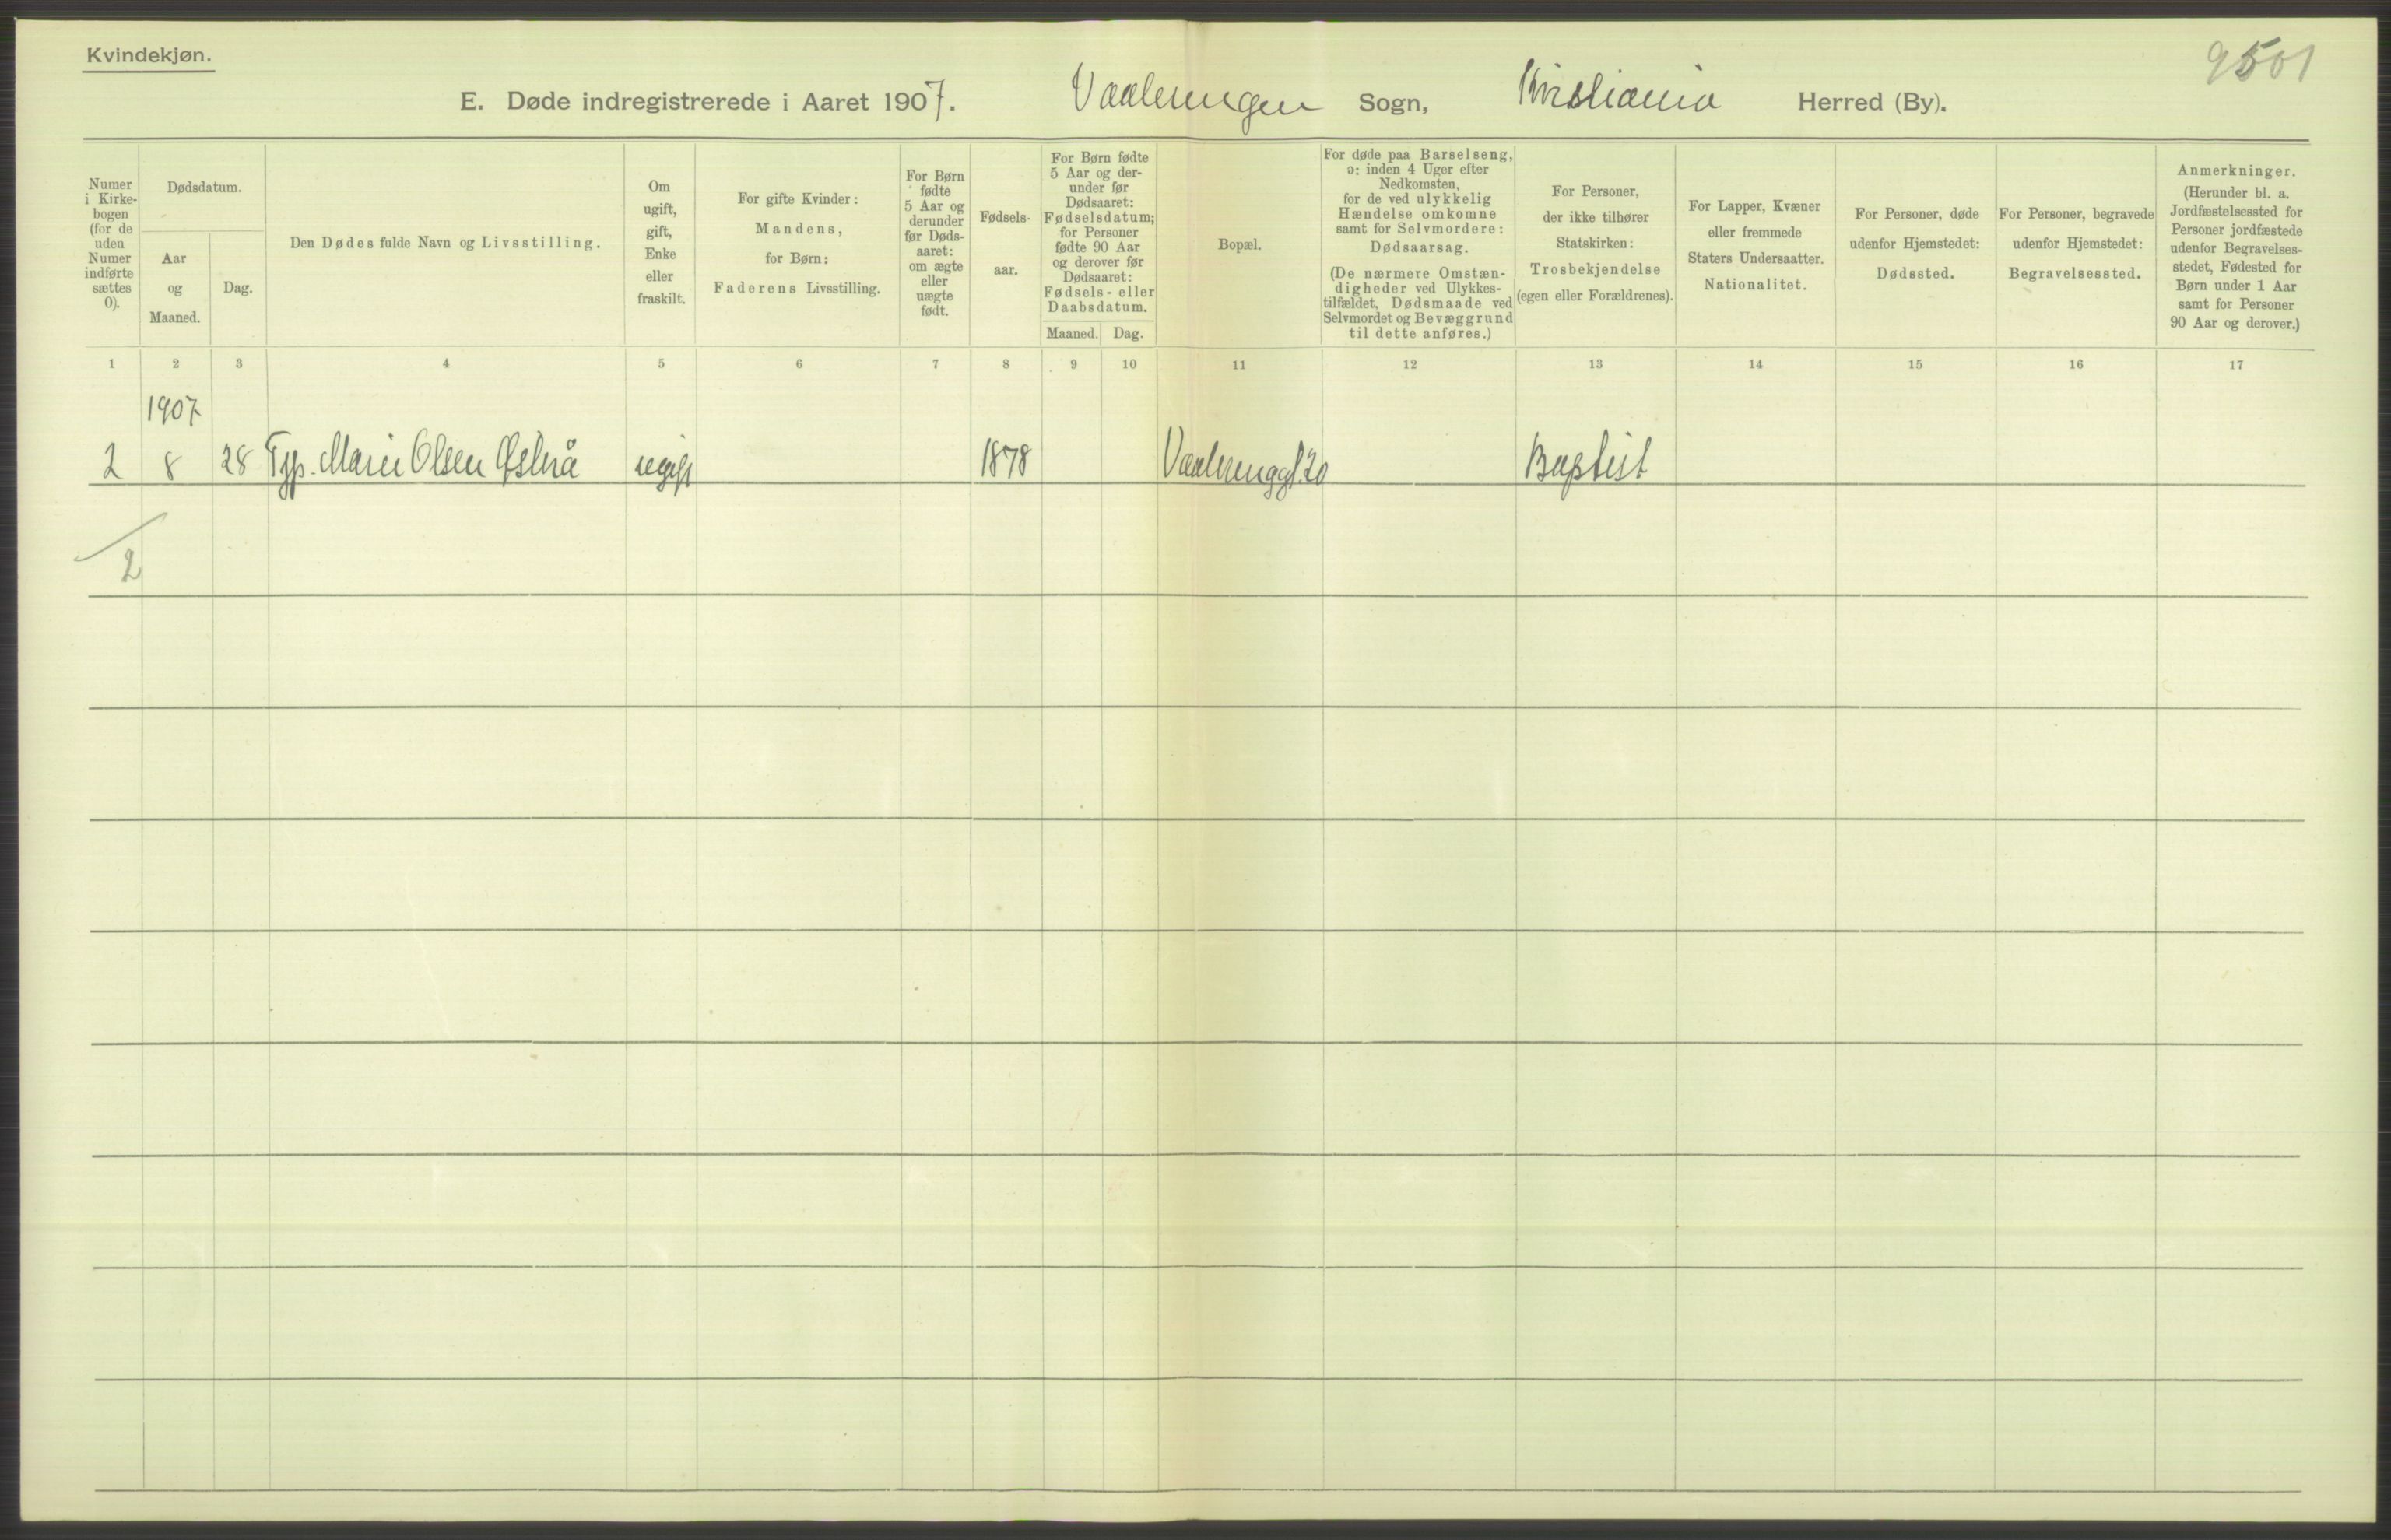 Kvindekjøn.
9501
E. Døde indregistrerede i Aaret 1907. Vaalerengen Sogn, Kristiania Herred (By).
Numer
i Kirke-
bogen
(for de
uden
Numer
indførte
sættes
0).
Dødsdatum.
Aar
og
Maaned.
Dag.
Den Dødes fulde Navn og Livsstilling.
Om
ugift,
gift,
Enke
eller
fraskilt.
For gifte Kvinder:
Mandens,
for Børn:
Faderens Livsstilling.
For Børn
fødte
5 Aar og
derunder
før Døds-
aaret:
om ægte
eller
uægte
født.
Fødsels-
aar.
For Børn fødte
5 Aar og der-
under før
Dødsaaret:
Fødselsdatum;
for Personer
fødte 90 Aar
og derover før
Dødsaaret:
Fødsels- eller
Daabsdatum.
Maaned. Dag.
Bopæl.
For døde paa Barselseng,
ɔ: inden 4 Uger efter
Nedkomsten,
for de ved ulykkelig
Hændelse omkomne
samt for Selvmordere:
Dødsaarsag.
(De nærmere Omstæn-
digheder ved Ulykkes-
tilfældet, Dødsmaade ved
Selvmordet og Bevæggrund
til dette anføres.)
For Personer,
der ikke tilhører
Statskirken:
Trosbekjendelse
(egen eller Forældrenes).
For Lapper, Kvæner
eller fremmede
Staters Undersaatter.
Nationalitet.
For Personer, døde
udenfor Hjemstedet:
Dødssted.
For Personer, begravede
udenfor Hjemstedet:
Begravelsessted.
Anmerkninger.
(Herunder bl. a.
Jordfæstelsessted for
Personer jordfæstede
udenfor Begravelses-
stedet, Fødested for
Børn under 1 Aar
samt for Personer
90 Aar og derover.)
1 2 3 4 5 6 7 8 9 10 11 12 13 14 15 16 17
1907
2 8 28 Typ. Marie Olsen Østerå ugift 1878 Vaalerenggt. 20 Baptist
2